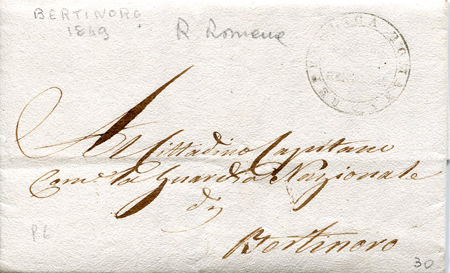 BERTINORO
1849
R Romana
REPUBBLICA ROMANA
Al Cittadino Capitano
Com.te la Guardia Nazionale
di
Bertinoro
PL
30